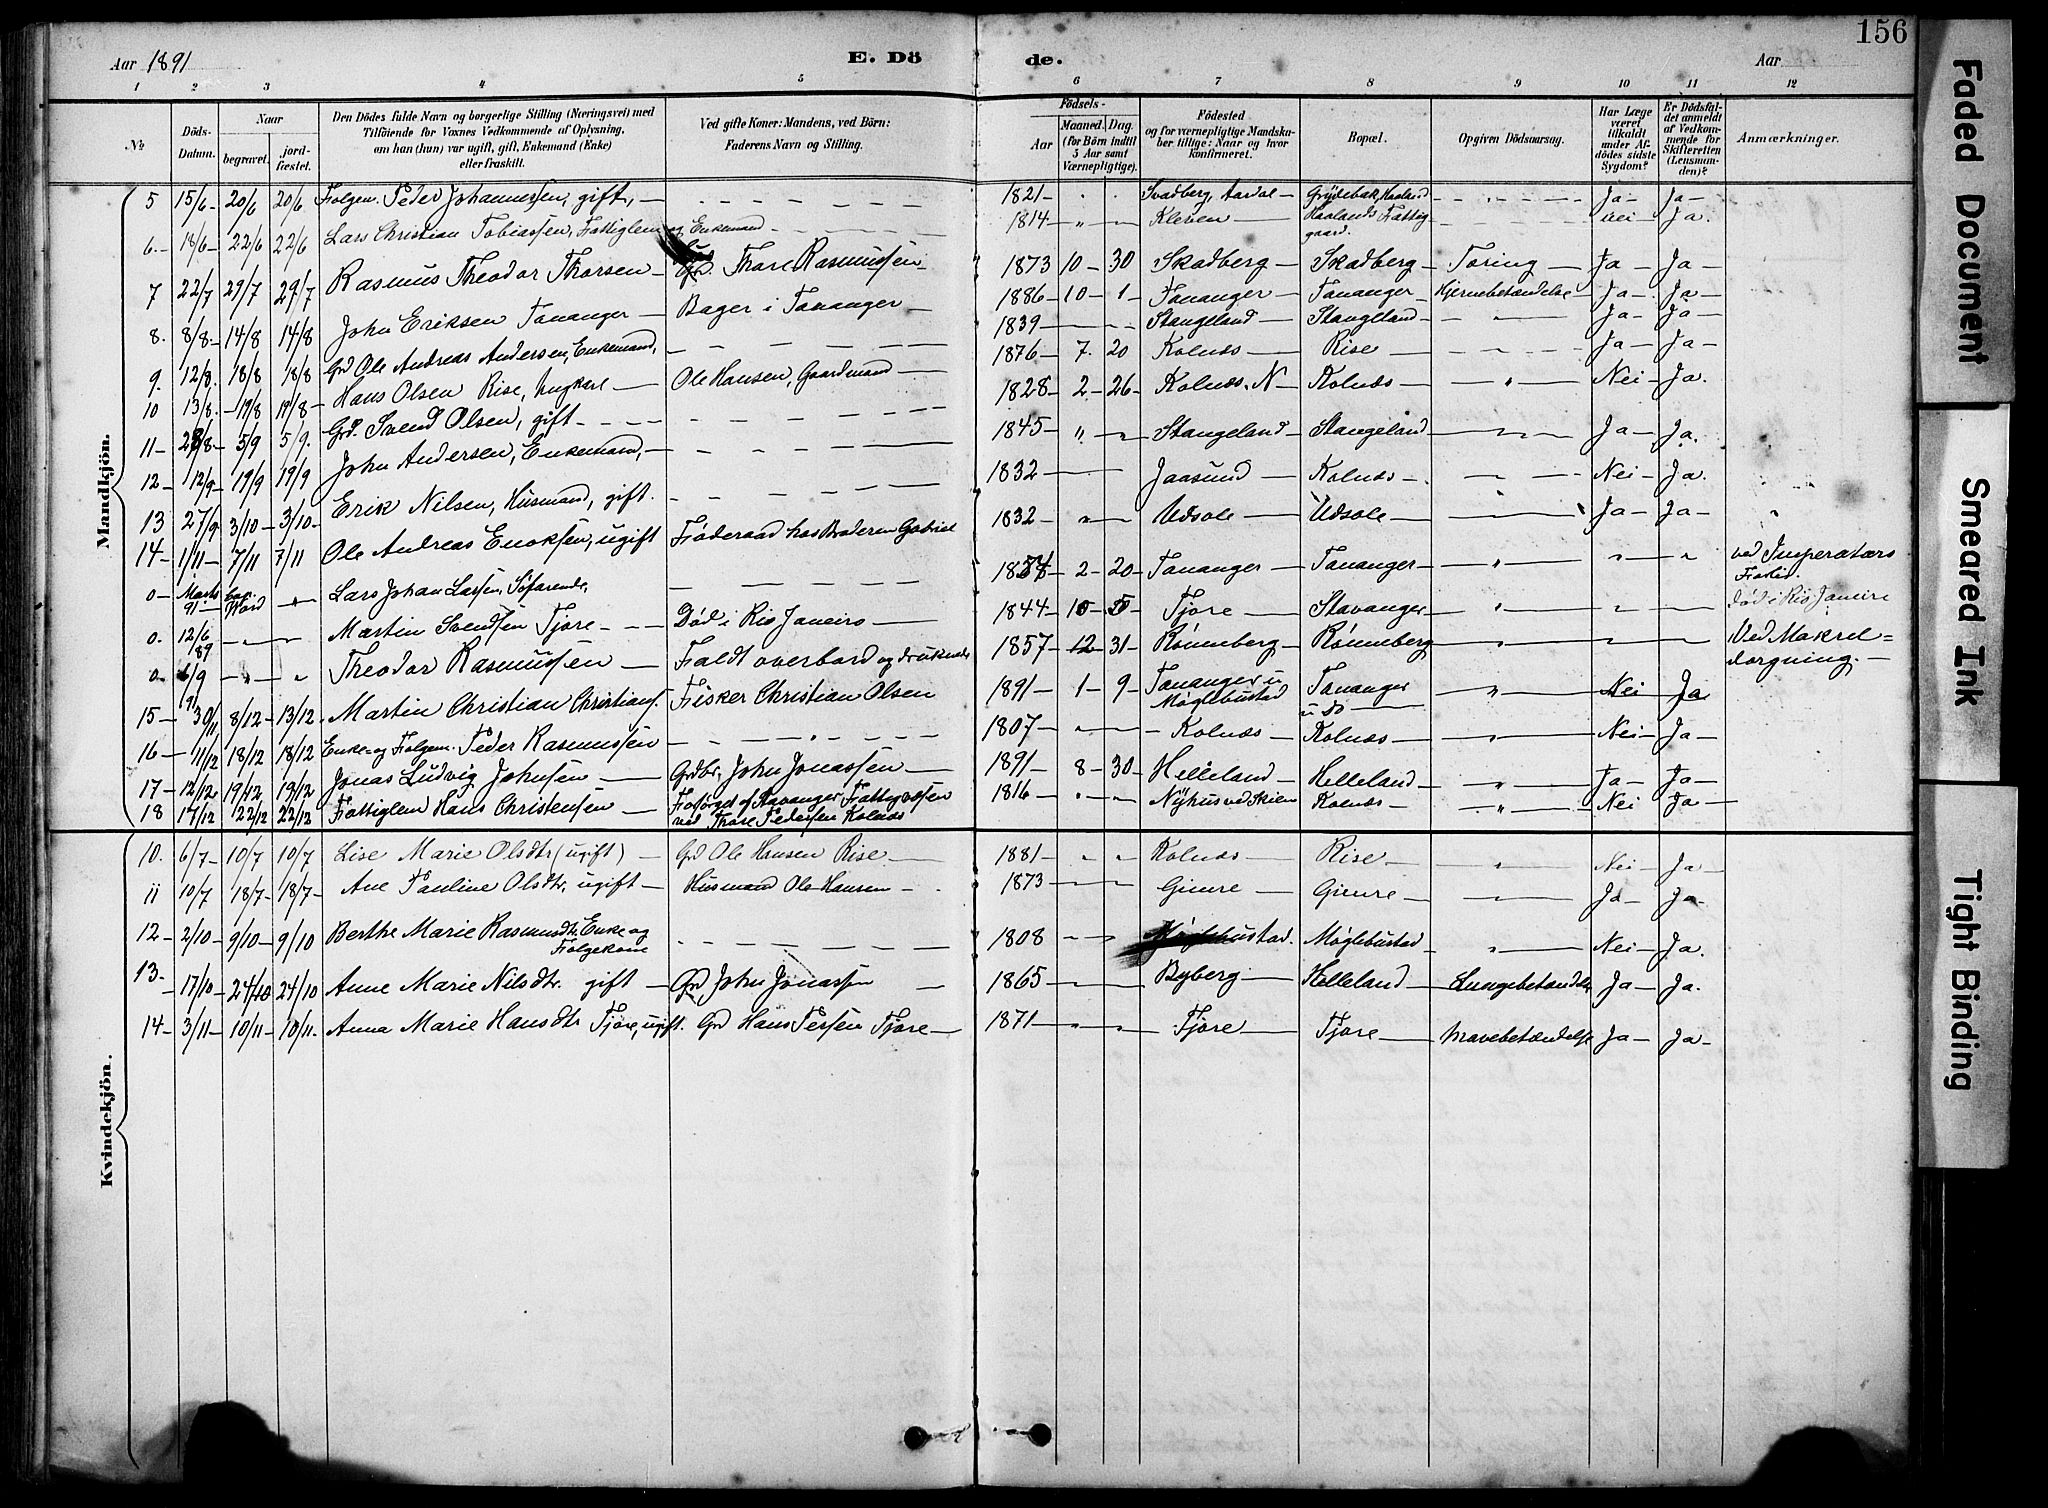 156
Aar 1891
E. Dö
de.
Aar
1 2 3 4 5 6 7 8 9 10 11 12
№
Döds-Datum.
Naar
begravet.
jordfæstet.
Den Dödes fulde Navn og borgerlige Stilling (Næringsvei) med
Tilföiende for Voxnes Vedkommende af Oplysning,
om han (hun) var ugift, gift, Enkemand (Enke)
eller fraskilt.
Ved gifte Koner: Mandens, ved Börn:
Faderens Navn og Stilling.
Födsels-
Aar
Maaned. Dag.
(for Börn indtil
5 Aar samt
Værnepligtige).
Födested
og for værnepligtige Mandskaber tillige: Naar og hvor
konfirmeret.
Bopæl.
Opgiven Dödsaarsag.
Har Læge
været
tilkaldt
under Afdödes sidste
Sygdom?
Er Dödsfaldet anmeldt
af Vedkommende for
Skifteretten
(Lensmanden)?
Anmærkninger.
Mandkjön.
5 15/6 20/6 20/6 Folgem. Peder Johannessen, gift, 1821 Svadberg, Aardal Grydebak, Kaaland Ja Ja
6 18/6 22/6 22/6 Lars Christian Tobiassen, Fattiglem og Enkemand 1814 Kleven Kaalands Fattiggaard. Nei Ja.
7 22/7 29/7 29/7 Rasmus Theodor Thorsen Thore Rasmussen 1873 10 30 Skadberg Skadberg Tæring Ja Ja
8. 8/8 14/8 14/8 John Eriksen Tananger Bager i Tananger 1886 10 1 Tananger Tananger Hjernebetændelse Ja Ja
9. 12/8. 18/8 18/8 Grd Ole Andreas Andersen, Enkemand, 1839 Stangeland Stangeland " Ja Ja
10 13/8. 19/8 19/8 Hans Olsen Rise, Ungkarl Ole Hansen, Gaardmand 1876 7. 20 Kolnæs Rise Ja Ja
11 28/8 5/9 5/9. Grd. Svend Olsen, gift 1828 2 26 Kolnæs. N Kolnæs " Nei Ja.
12 12/9 19/9 19/9 John Andersen, Enkemand, 1845 " " Stangeland Stangeland " Ja Ja.
13 27/9 3/10 3/10 Erik Nilsen, Husmand, gift. 1832 Jaasund Kolnæs Nei Ja.
14 1/11 7/11 7/11 Ole Andreas Enoksen, ugift Føderaad hos Broderen Gabriel 1832 " Udsole Udsole " Ja Ja "
0 Marts 91 Lars Johan Larsen, Søfarende, 2 20 Tananger Tananger " " " ved Imperators Forlid.
0. 12/6 89 " Martin Svendsen Tjore Død i Rio Janeiro 1844 10 5 Tjore Stavanger " " død i Rio Janeiro
0 6/9 91 " " Theodor Rasmussen Faldt overbord og druknede 1857 12 31 Rønneberg Rønneberg " Ved Makreldorgning.
15 30/11 8/12 13/12 Martin Christian Christians. Fisker Christian Olsen 1891 1 9 Tananger u Møglebustad Tananger u do " Nei Ja
16 11/12 18/12 18/12 Enke- og Folgem. Peder Rasmussen " 1807 " Kolnæs Kolnæs " Nei Ja
17 12/12 19/12 19/12 Jonas Ludvig Johnsen Grdbr. John Jonassen 1891 8 30 Helleland Helleland " Ja Ja
18 17/12 22/12 22/12 Fattiglem Hans Christensen Forsørget af Stavanger Fattigvæsen ved Thore Pedersen Kolnæs 1816 " " Nyhus ved Skien Kolnæs " Nei Ja
Kvindekjön.
10. 6/7 10/7 10/7 Lise Marie Olsdtr (ugift) Grd Ole Hansen Rise 1881 " " Kolnæs Rise " Nei Ja
11 10/7 18/7 18/7 Ane Pauline Olsdtr, ugift Husmand Ole Hansen 1873 Gimre Gimre " Ja Ja
12 2/10 9/10 9/10 Berthe Marie Rasmusdtr Enke og Folgekone 1808 " Møglebustad. Møglebustad " Nei Ja.
13. 17/10 24/10 24/10 Anne Marie Nilsdtr. gift Grd John Jonassen 1865 " Byberg Helleland Lungebetændelse Ja Ja.
14 3/11 10/11 10/11. Anna Marie Hansdtr Tjore, ugift. Grd Hans Persen Tjore 1871 " " Tjore Tjore Mavebetændelse Ja Ja
Faded Document
Smeared Ink
Tight Binding